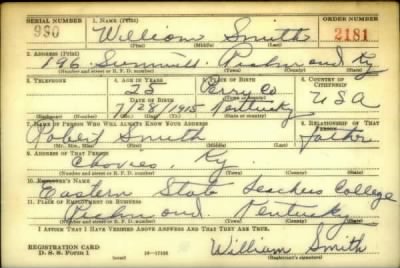 SERIAL NUMBER 1. NAME (Print) ORDER NUMBER
930 William Smith 2181
(First) (Middle) (Last)
2. ADDRESS (Print)
196 Summit Richmond Ky
(Number and street or R. F. D. number) (Town) (County) (State)
3. TELEPHONE 4. AGE IN YEARS 5. PLACE OF BIRTH 6. COUNTRY OF CITIZENSHIP
25 Perry Co
DATE OF BIRTH (Town or county)
7/28/1915 Kentucky USA
(Exchange) (Number) (Mo.) (Day) (Yr.) (State or country)
7. NAME OF PERSON WHO WILL ALWAYS KNOW YOUR ADDRESS 8. RELATIONSHIP OF THAT PERSON
Robert Smith Father
(Mr., Mrs., Miss) (First) (Middle) (Last)
9. ADDRESS OF THAT PERSON
Ky.
(Number and street or R. F. D. number) (Town) (County) (State)
10. EMPLOYER'S NAME
Eastern State Teachers College
11. PLACE OF EMPLOYMENT OR BUSINESS
Richmond Kentucky
(Number and street or R. F. D. number) (Town) (County) (State)
I AFFIRM THAT I HAVE VERIFIED ABOVE ANSWERS AND THAT THEY ARE TRUE.
REGISTRATION CARD
D. S. S. Form 1 (over) William Smith
(Registrant's signature)